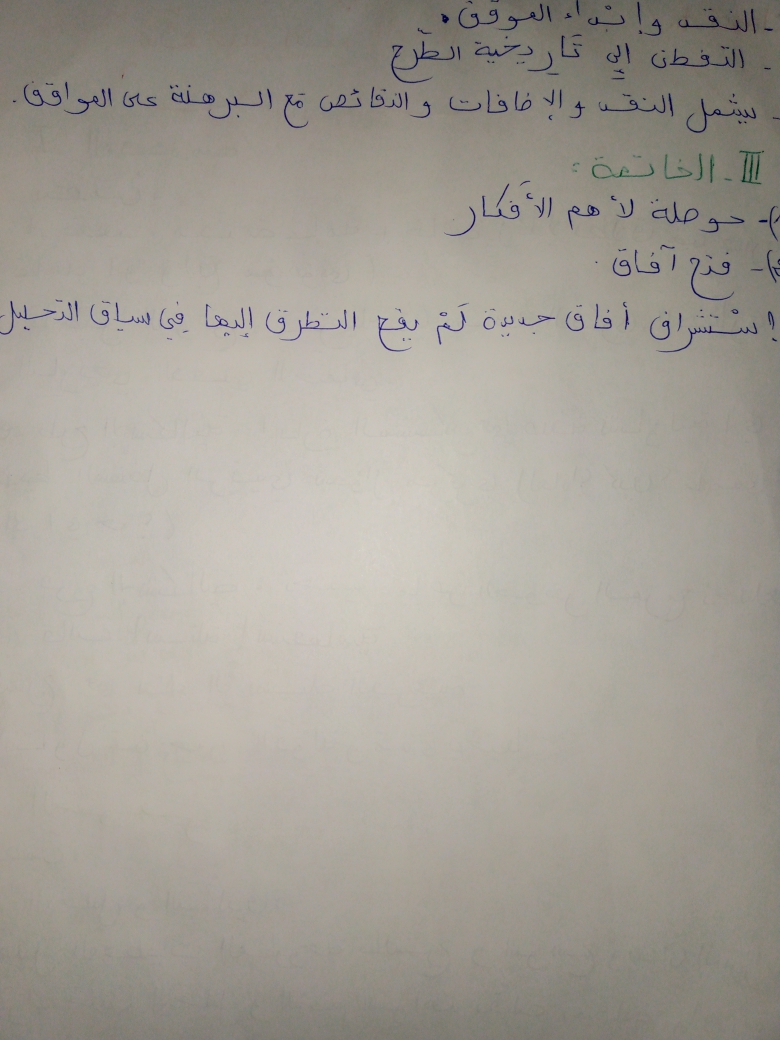 - النقد وإبداء الموقف.
- التفطن إلي تَارِيخية الطّرح
- يشمل النقد والإضافات والنقائص مَع البرهنة على المواقف.
III - الخاتمة :
)- حوصلة لأهم الأَفكار
)- فتح آفاق.
إسْتشراف أفاق جديدة لَمْ يقع التطرق إليها فِي سياق التحليل